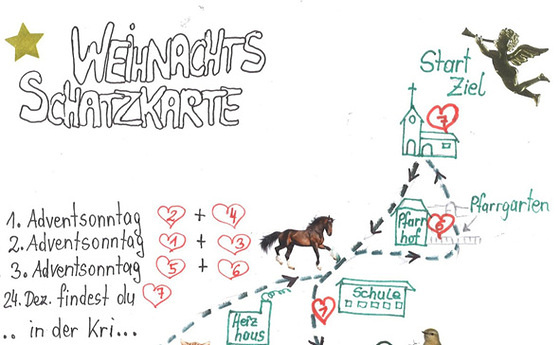 WEIHNACHTS
SCHATZKARTE
Start
Ziel
7
1. Adventsonntag 2 + 4
2. Adventsonntag 1 + 3
3. Adventsonntag 5 + 6
24. Dez. findest du 7
... in der Kri...
Pfarrgarten
Pfarr
hof
6
Schule
Heiz
haus